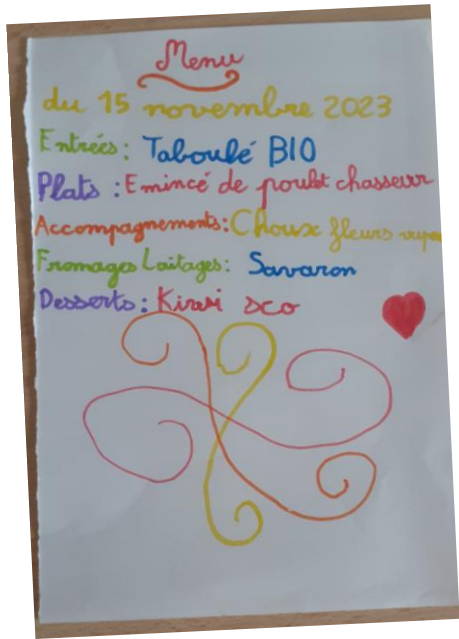 Menu
du 15 novembre 2023
Entrées : Taboulé BIO
Plats : Emincé de poulet chasseur
Accompagnements : Choux fleurs
Fromages Laitages : Savaron
Desserts : Kiwi sco